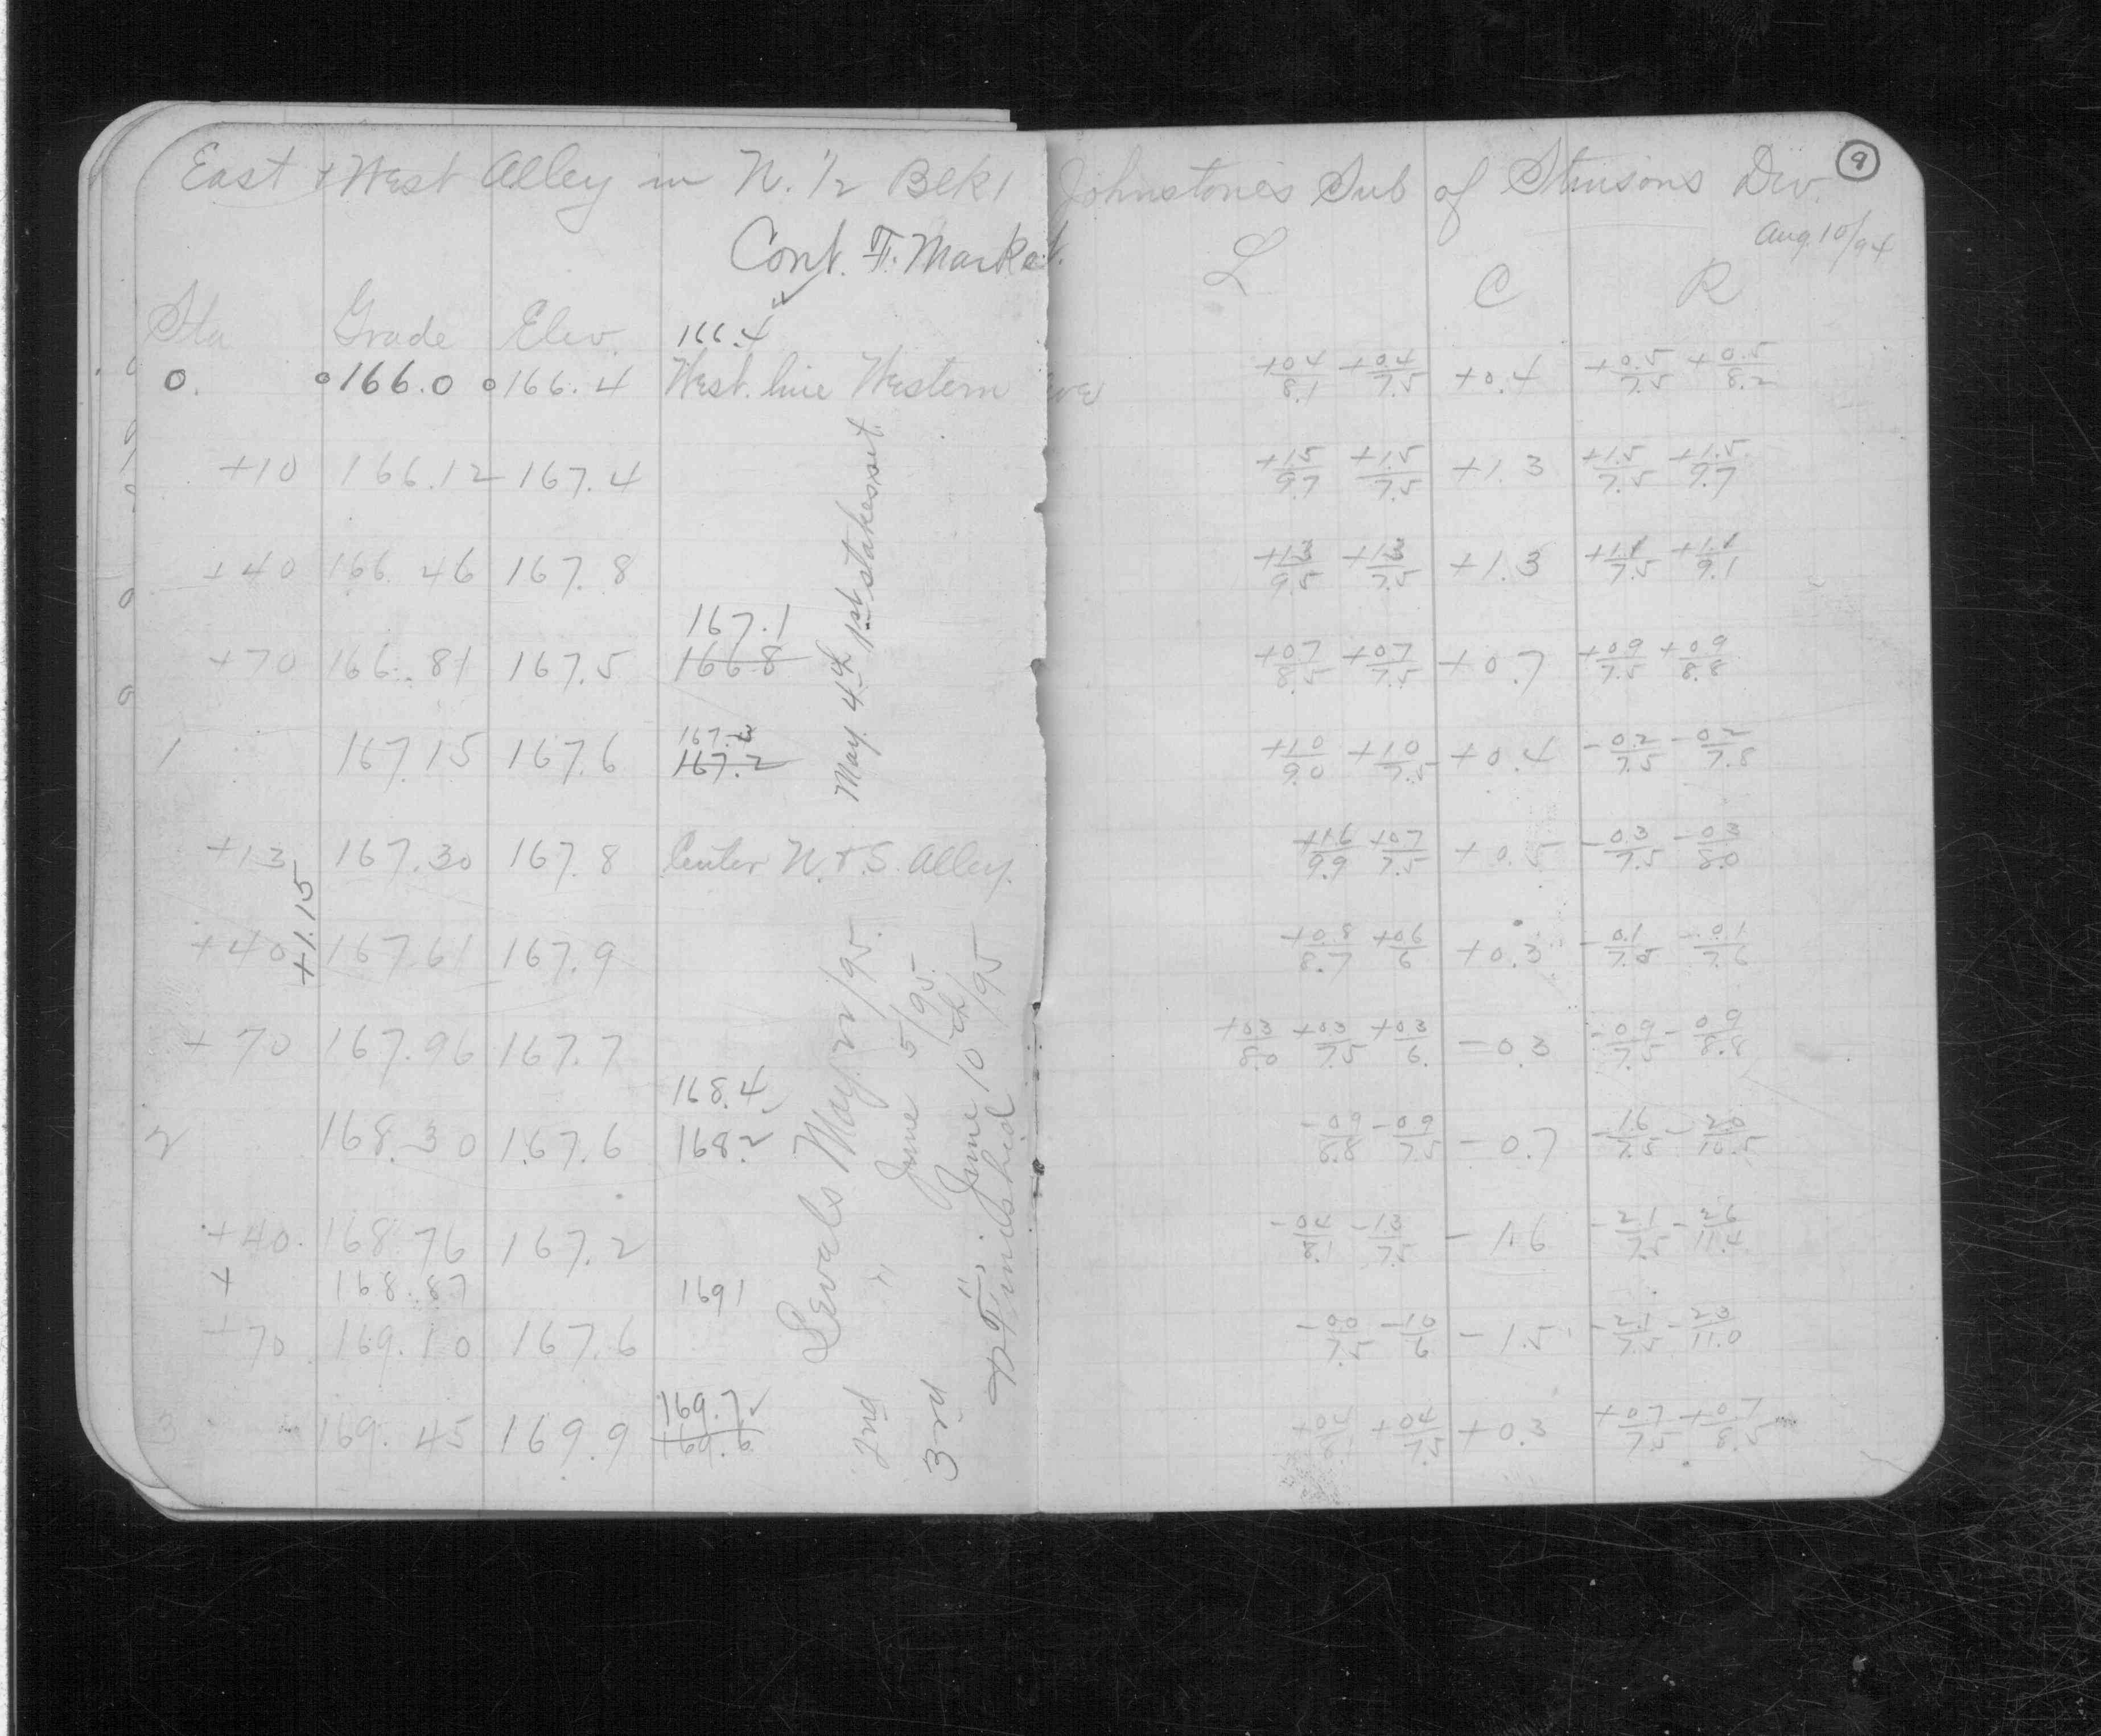 East + West Alley in N. 1/2 Blk 1 Johnstone's Sub of Stinsons Div. 9
Aug. 10/94
Cont. F. Market.
Sta Grade Elev. 166.4 L C R
0. 166.0 166.4 West line Western Ave +0.4/8.1 +0.4/7.5 +0.4 +0.5/7.5 +0.5/8.2
+10 166.12 167.4 +1.5/9.7 +1.5/7.5 +1.3 +1.5/7.5 +1.5/9.7
+40 166.46 167.8 +1.3/9.5 +1.3/7.5 +1.3 +1.1/7.5 +1.1/9.1
167.1
+70 166.81 167.5 166.8 +0.7/8.5 +0.7/7.5 +0.7 +0.9/7.5 +0.9/8.8
1 167.15 167.6 167.2 +1.0/9.0 +1.0/7.5 +0.4 -0.2/7.5 -0.2/7.8
+13 167.30 167.8 Center N. & S. Alley. +1.6/9.9 +0.7/7.5 +0.5 -0.3/7.5 -0.3/8.0
+1.15
+40 167.61 167.9 +0.8/8.7 +0.6/6 +0.3 -0.1/7.5 -0.1/7.6
+70 167.96 167.7 +0.3/8.0 +0.3/7.5 +0.3/6. -0.3 -0.9/7.5 -0.9/8.8
168.4
2 168.30 167.6 168.2 -0.9/8.8 -0.9/7.5 -0.7 -1.6/7.5 -2.0/10.5
+40. 168.76 167.2 -0.4/8.1 -1.3/7.5 -1.6 -2.1/7.5 -2.6/11.4
+ 168.87 169 1
+70 169.10 167.6 -0.0/7.5 -1.0/6 -1.5 -2.1/7.5 -2.3/11.0
169.7
3 169.45 169.9 169.6 +0.4/8.1 +0.4/7.5 +0.3 +0.7/7.5 +0.7/8.5
May. 4th 1st stakes set.
2nd Levels May. 22/95.
3rd " June 5/95.
" June 10th/95
Finished